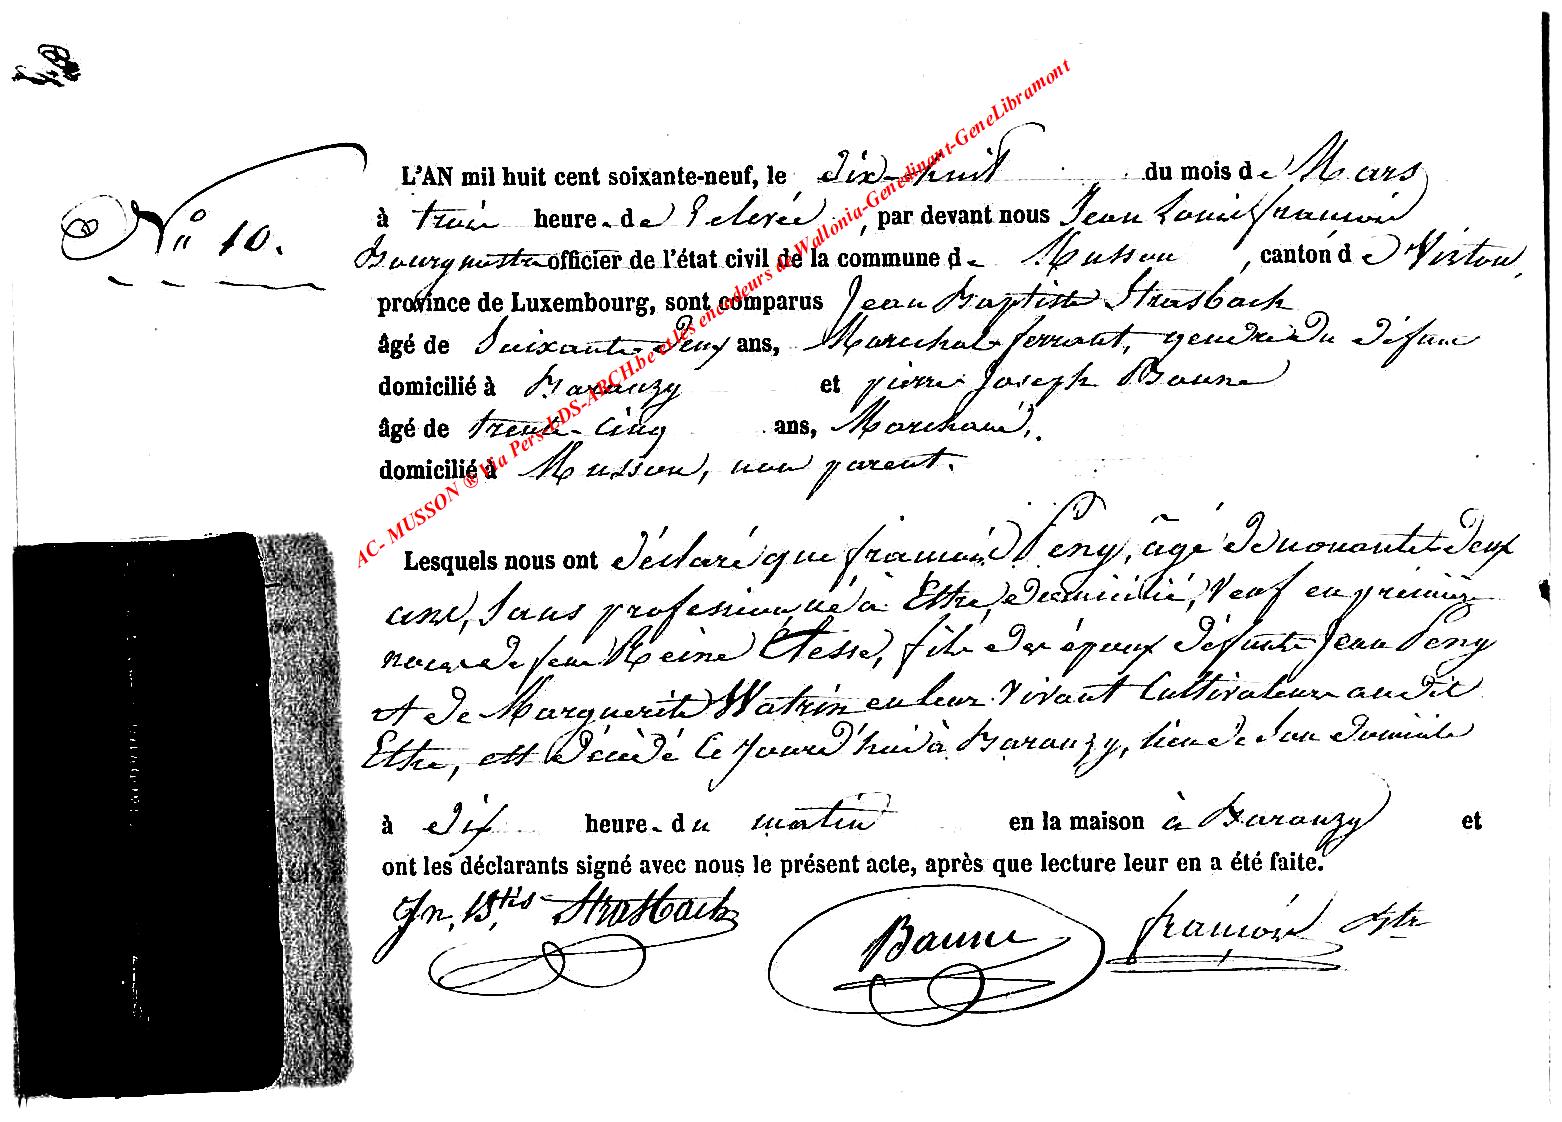 N° 10.
L'AN mil huit cent soixante-neuf, le dix-huit du mois de Mars
à trois heures de relevée, par devant nous Jean Louis françois
Bourgmestre officier de l'état civil de la commune de Musson, canton de Virton,
province de Luxembourg, sont comparus Jean Baptiste Strasbach
âgé de Soixante deux ans, Marechal ferrant, gendre du défunt
domicilié à Baranzy et pierre Joseph Baune
âgé de trente-cinq ans, Marchand,
domicilié à Musson, non parent.
Lesquels nous ont déclaré que françois Peny, âgé de nonante deux
ans, sans profession, né à Ethe, domicilié, veuf en premières
noces de feue Reine Etesse, fils des époux défunts Jean Peny
et de Marguerite Watrin en leur vivant Cultivateurs audit
Ethe, est décédé ce jourd'hui à Baranzy, lieu de son domicile
à dix heures du matin en la maison à Baranzy et
ont les déclarants signé avec nous le présent acte, après que lecture leur en a été faite.
Jn. Bte Strasbach Baune françois
AC- MUSSON ® Via Pers-LDS-ARCH.be et les encodeurs de Wallonia-Genedinant-GeneLibramont